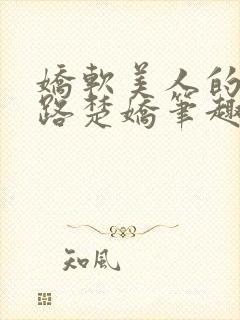 嬌軟美人的
路楚嬌筆趣
知風